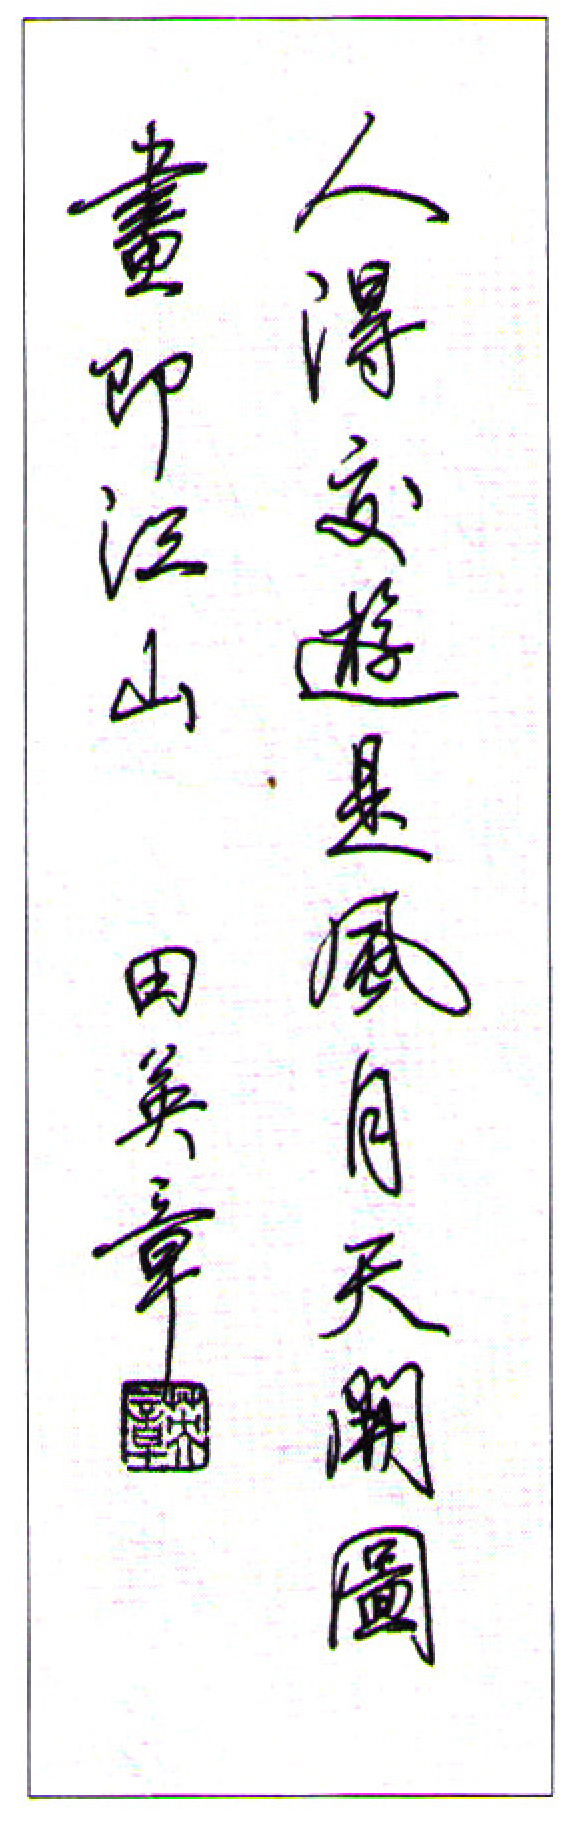 人得交遊是風月天開圖
畫即江山 田英章
英章